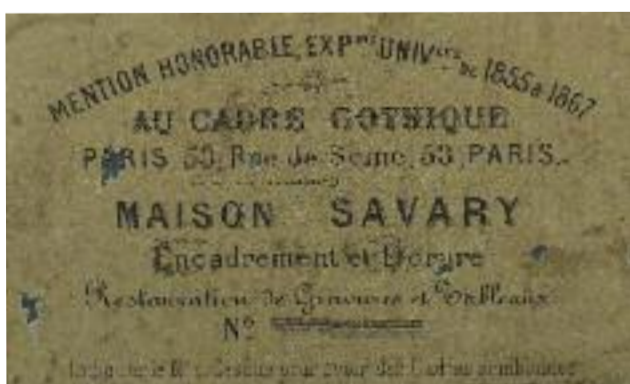 MENTION HONORABLE, EXPons UNIVlles DE 1855 & 1867
AU CADRE GOTHIQUE
PARIS 53, Rue de Seine, 53, PARIS.
MAISON SAVARY
Encadrement et Dorure
Restauration de Gravures et Tableaux
No